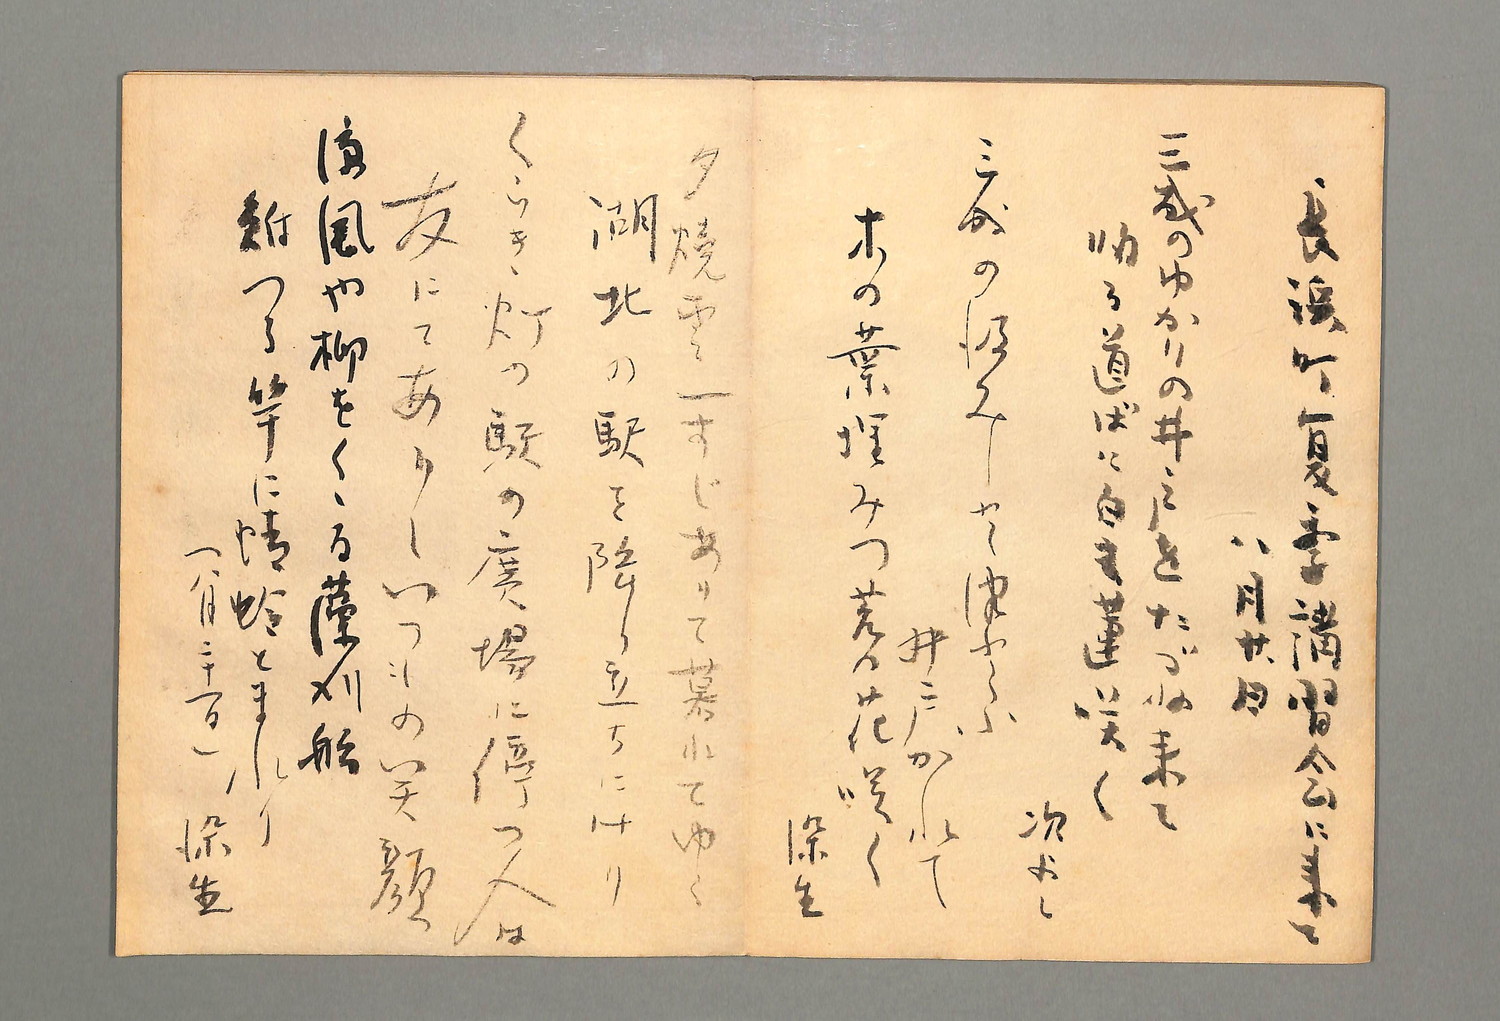 長浜町夏季講習会に来て
八月廿日
三成のゆかりの井戸をたづね来て
帰る道ばに白き蓮咲く
次よし
三成の汲みしと伝ふ
井戸かれて
木の葉埋みつ葛の花咲く
深生
夕焼雲一すじありて暮れてゆく
湖北の駅を降り立ちにけり
くらき灯の駅の廣場に停つ人は
友にてありしいつもの笑顔
涼風や柳をくゝる藻刈船
鮒つる竿に蜻蛉とまれり
(八月二十一日)
深生